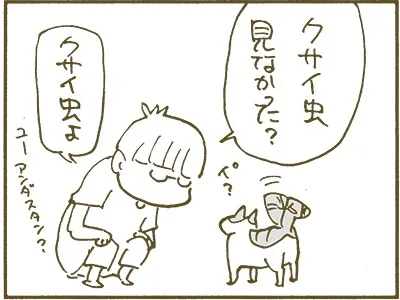 クサイ虫
見なかった?
クサイ虫よ
ユーアンダスタン?
ペ?